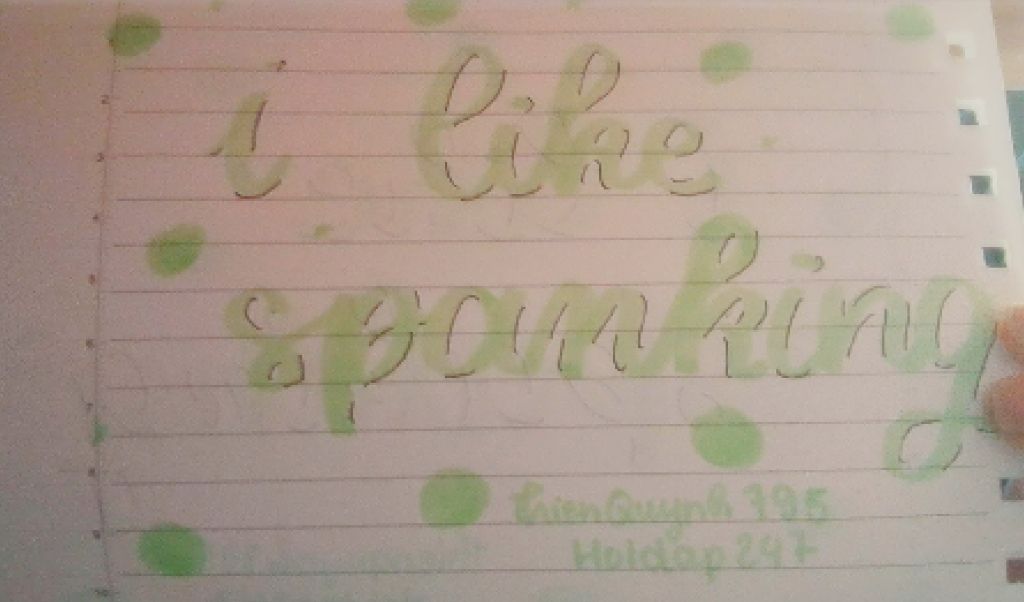 i like
spanking
thienQuynh 795
Hoidap 247